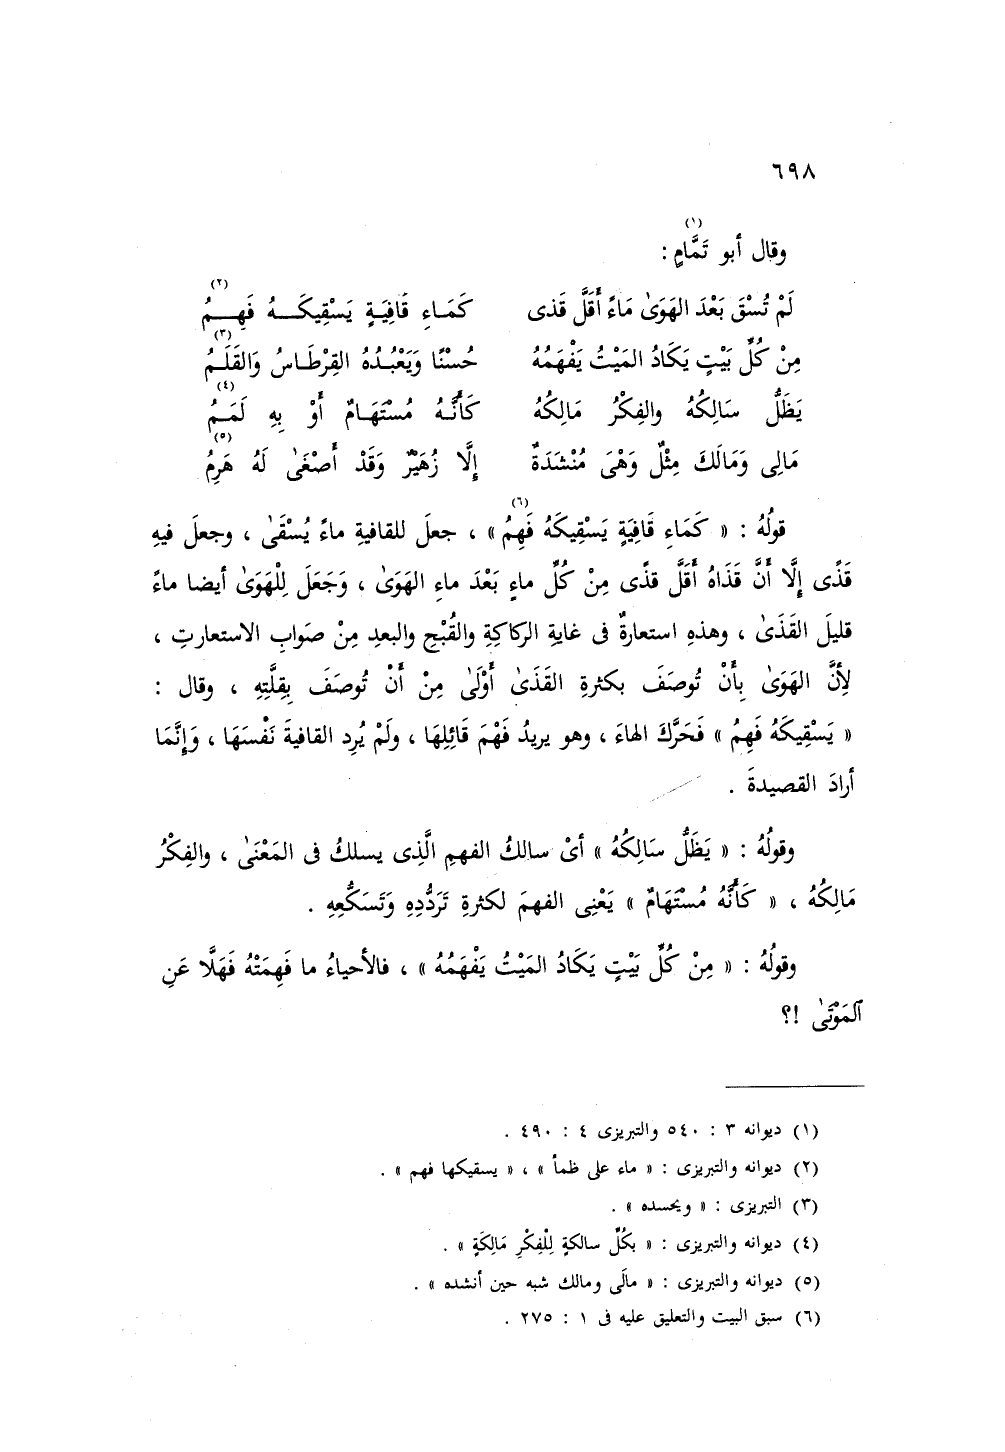 ٦٩٨
وقال أبو تَمَّامٍ (١) :
لَمْ تُسْقَ بَعْدَ الهَوَىٰ مَاءً أَقَلَّ قَذى كَمَاءِ قَافِيَةٍ يَسْقِيكَهُ فَهِمُ (٢)
مِنْ كُلِّ بَيْتٍ يَكَادُ المَيْتُ يَفْهَمُهُ حُسْنًا وَيَعْبُدُهُ القِرْطَاسُ وَالقَلَمُ (٣)
يَظَلُّ سَالِكُهُ والفِكْرُ مَالِكُهُ كَأَنَّهُ مُسْتَهَامٌ أَوْ بِهِ لَمَمُ (٤)
مَالِى وَمَالَكَ مِثْلٌ وَهْىَ مُنْشَدَةٌ إِلَّا زُهَيْرٌ وَقَدْ أَصْغَىٰ لَهُ هَرِمُ (٥)
قولُهُ : « كَمَاءِ قَافِيَةٍ يَسْقِيكَهُ فَهِمُ (٦) » ، جعلَ للقافيةِ ماءً يُسْقَىٰ ، وجعلَ فيهِ
قَذًى إِلَّا أَنَّ قَذَاهُ أَقَلَّ قذًى مِنْ كُلِّ ماءٍ بَعْدَ ماءِ الهَوَىٰ ، وَجَعَلَ لِلْهَوَىٰ أيضا ماءً
قليلَ القَذَىٰ ، وهذهِ استعارةٌ فى غايةِ الركاكةِ والقُبْحِ والبعدِ مِنْ صَوابِ الاستعارتِ ،
لِأنَّ الهَوَىٰ بِأَنْ تُوصَفَ بكثرةِ القَذَىٰ أَوْلَىٰ مِنْ أَنْ تُوصَفَ بِقِلَّتِهِ ، وقال :
« يَسْقِيكَهُ فَهِمُ » فَحَرَّكَ الهاءَ ، وهو يريدُ فَهْمَ قَائِلِهَا ، ولَمْ يُرِد القافيةَ نَفْسَهَا ، وَإِنَّمَا
أرادَ القصيدةَ .
وقولُهُ : « يَظَلُّ سَالِكُهُ » أىْ سالكُ الفهمِ الَّذِى يسلكُ فى المَعْنَىٰ ، والفِكْرُ
مَالِكُهُ ، « كَأَنَّهُ مُسْتَهَامٌ » يَعْنِى الفهمَ لكثرةِ تَرَدُّدِهِ وَتَسَكُّعِهِ .
وقولُهُ : « مِنْ كُلِّ بَيْتٍ يَكَادُ المَيْتُ يَفْهَمُهُ » ، فالأحياءُ ما فَهِمَتْهُ فَهَلَّا عَنِ
ٱلمَوْتَىٰ !؟
(١) ديوانه ٣ : ٥٤٠ والتبريزى ٤ : ٤٩٠ .
(٢) ديوانه والتبريزى : « ماء على ظمأ » ، « يسقيكها فهم » .
(٣) التبريزى : « ويحسده » .
(٤) ديوانه والتبريزى : « بكُلِّ سالكةٍ لِلْفِكْرِ مَالِكَةٍ » .
(٥) ديوانه والتبريزى : « مالَى ومالك شبه حين أنشده » .
(٦) سبق البيت والتعليق عليه فى ١ : ٢٧٥ .